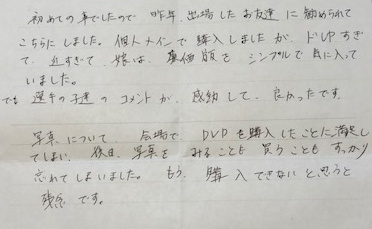 初めての事でしたので 昨年、出場したお友達に勧められて
こちらにしました。個人メインで購入しましたが、ドUPすぎ
て、近すぎて、娘は、廉価版を シンプルで気に入って
いました。
でも 選手の子達のコメントが、感動して、良かったです。
写真について、会場で DVDを購入したことに満足し
てしまい、後日、写真を みることも 買うことも すっかり
忘れてしまいました。 もう、購入できないと思うと
残念です。